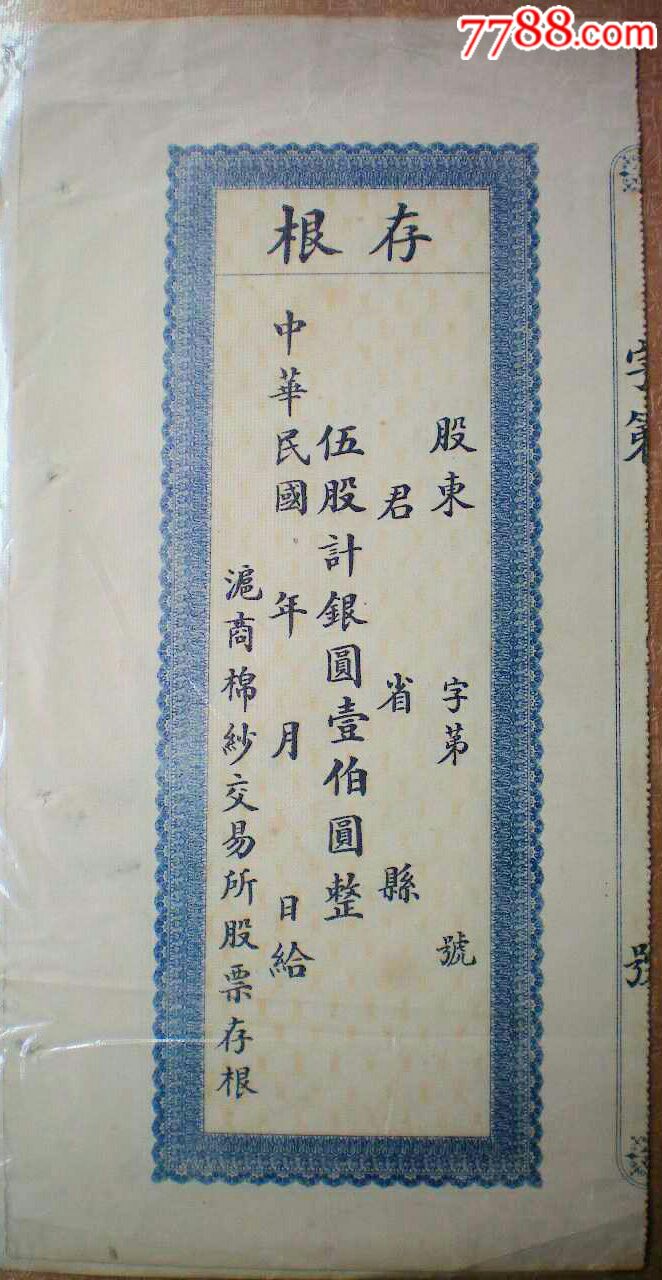 7788.com
存根
股東 字第 號
君 省 縣
伍股計銀圓壹伯圓整
中華民國 年 月 日給
滬商棉紗交易所股票存根
字第 號